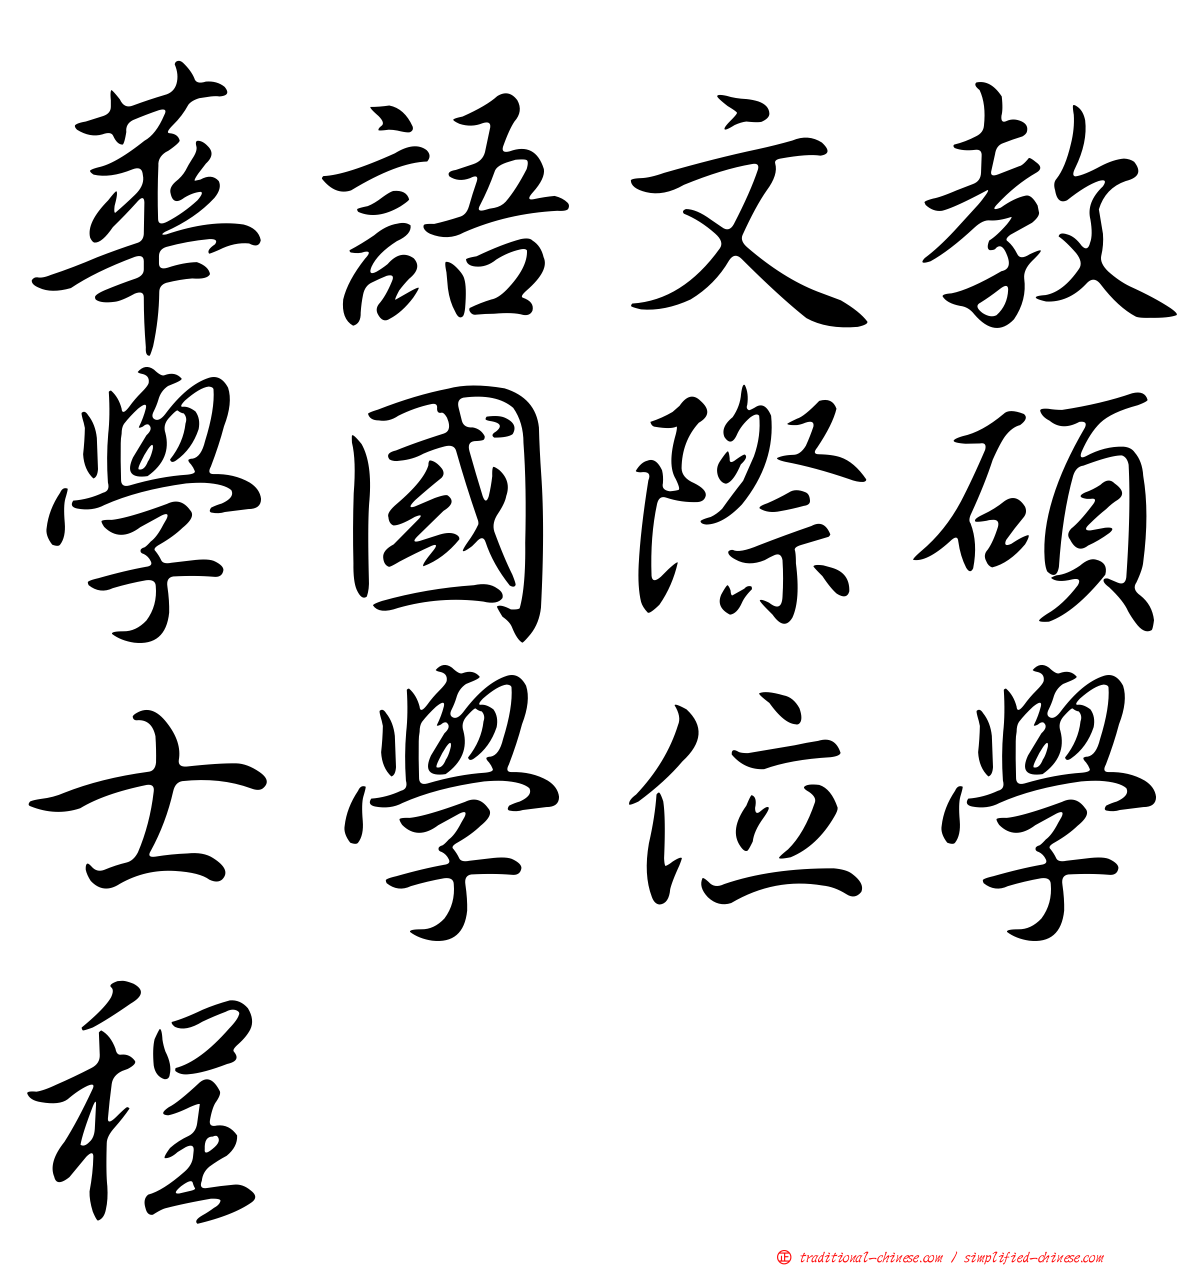 華語文教
學國際碩
士學位學
程
正 traditional-chinese.com / simplified-chinese.com